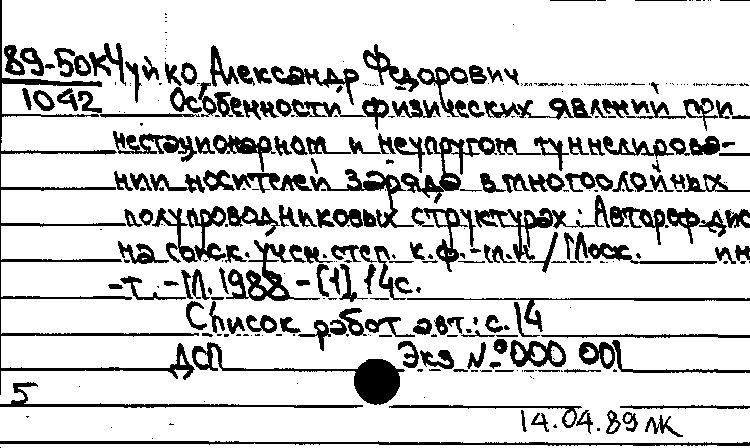 89-50к Чуйко, Александр Федорович
1042 Особенности физических явлений при
нестационарном и неупругом туннелирова-
нии носителей заряда в многослойных
полупроводниковых структурах: Автореф. дис
на соиск. учен. степ. к.ф.-м.н / Моск. ин
-т. - М. 1988 - [1], 14с.
Список работ авт.: с. 14
ДСП Экз № 000 001
5
14.04.89 лк